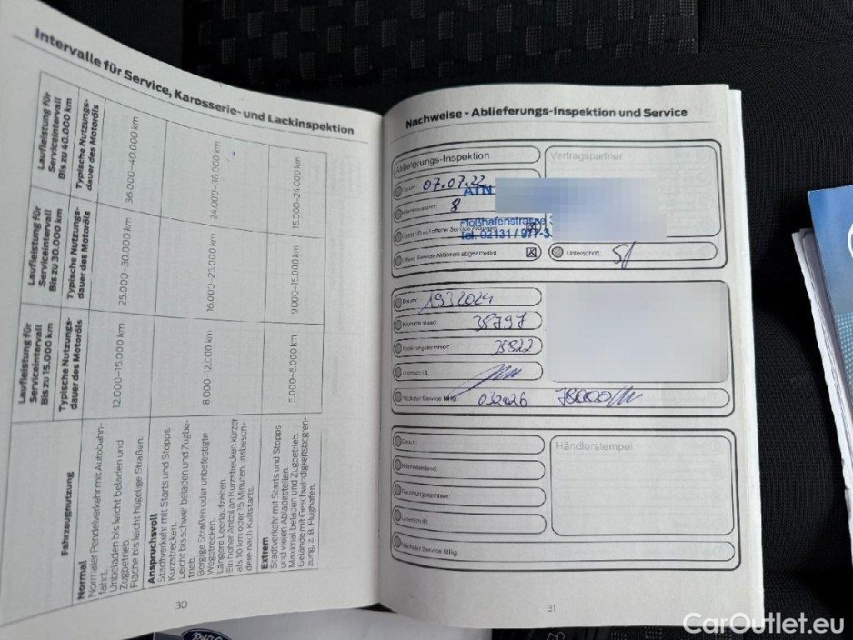 Intervalle für Service, Karosserie- und Lackinspektion
Fahrzeugnutzung
Laufleistung für
Serviceintervall
Bis zu 15.000 km
Typische Nutzungs-
dauer des Motoröls
Laufleistung für
Serviceintervall
Bis zu 30.000 km
Typische Nutzungs-
dauer des Motoröls
Laufleistung für
Serviceintervall
Bis zu 40.000 km
Typische Nutzungs-
dauer des Motoröls
Normal
Normaler Pendelverkehr mit Autobahn-
fahrt.
Unbeladen bis leicht beladen und
Zugbetrieb.
Flache bis leicht hügelige Straßen.
12.000–15.000 km
25.000–30.000 km
36.000–40.000 km
Anspruchsvoll
Stadtverkehr mit Starts und Stopps.
Kurzstrecken.
Leicht bis schwer beladen und Zugbe-
trieb.
Bergige Straßen oder unbefestigte
Wegstrecken.
Längere Leerlaufzeiten.
Ein hoher Anteil an Kurzstrecken kürzer
als 10 km oder 15 Minuten, insbeson-
dere nach Kaltstarts.
8.000–12.000 km
16.000–25.000 km
24.000–36.000 km
Extrem
Stadtverkehr mit Starts und Stopps
und vielen Abladestellen.
Maximal beladen und Zugbetrieb.
Gelände mit Geschwindigkeitsbegren-
zung, z. B. Flughafen.
5.000–8.000 km
9.000–15.000 km
15.000–24.000 km
30
Nachweise - Ablieferungs-Inspektion und Service
Ablieferungs-Inspektion
Vertragspartner
Datum: 07.07.22
ATN
8
Floßhafenstrasse
Tel. 02131 / 977-3
Unterschrift:
Datum: 19.3.2024
Kilometerstand: 35797
35822
Unterschrift:
Nächster Service fällig: 03.2026
Datum:
Händlerstempel
Kilometerstand:
Unterschrift:
Nächster Service fällig:
31
CarOutlet.eu